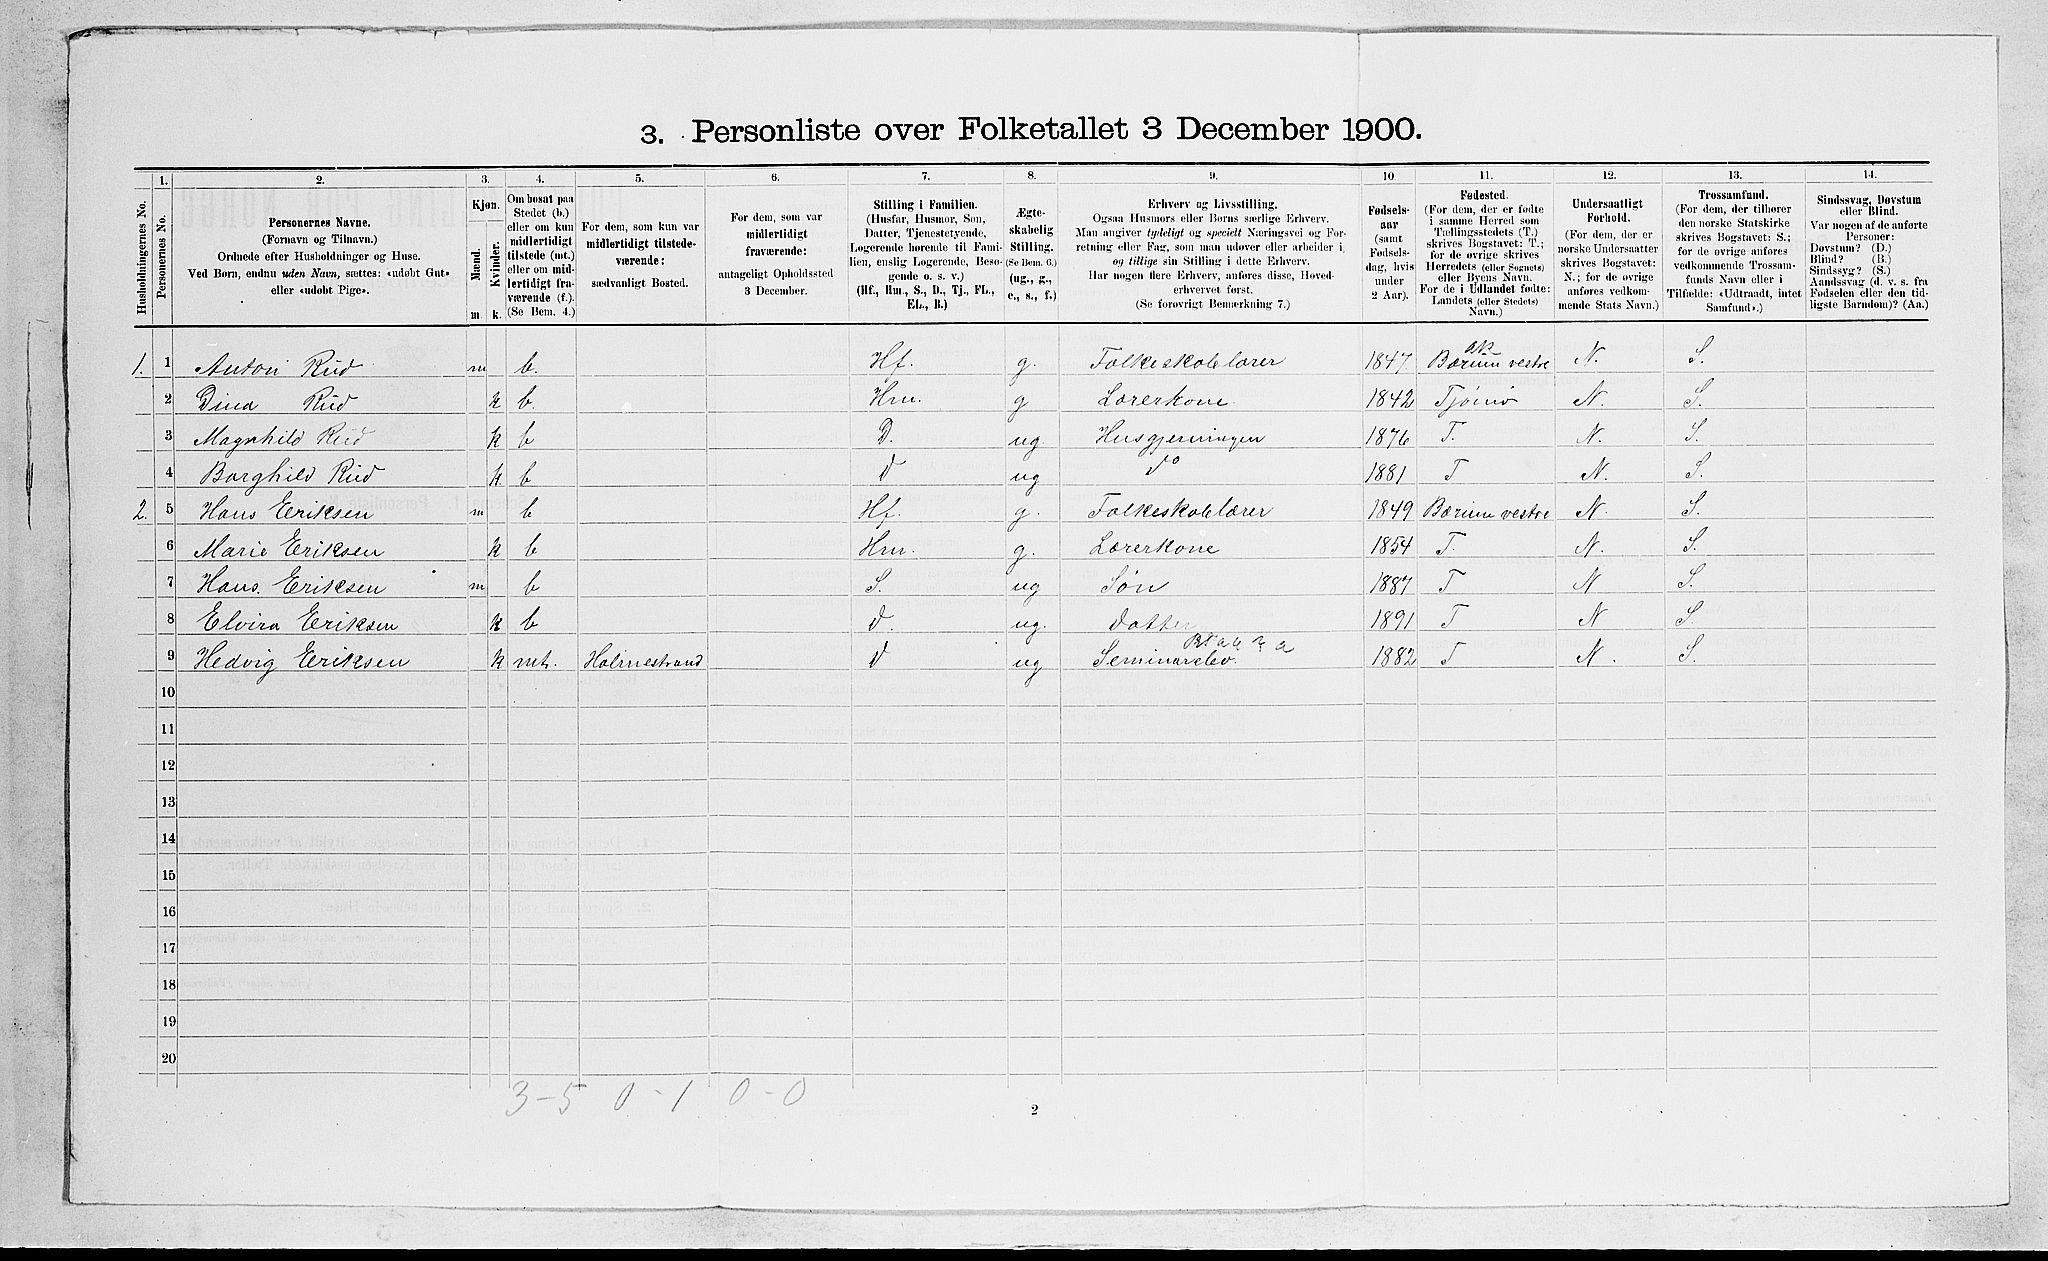 3. Personliste over Folketallet 3 December 1900.
Husholdningernes No.
1.
Personernes No.
2.
Personernes Navne.
(Fornavn og Tilnavn.)
Ordnede efter Husholdninger og Huse.
Ved Børn, endnu uden Navn, sættes: «udøbt Gut»
eller «udøbt Pige».
3.
Kjøn.
Mænd.
Kvinder.
m.
k.
4.
Om bosat paa
Stedet (b.)
eller om kun
midlertidigt
tilstede (mt.)
eller om mid-
lertidigt fra-
værende (f.).
(Se Bem. 4.)
5.
For dem, som kun var
midlertidigt tilstede-
værende:
sædvanligt Bosted.
6.
For dem, som var
midlertidigt
fraværende:
antageligt Opholdssted
3 December.
7.
Stilling i Familien.
(Husfar, Husmor, Søn,
Datter, Tjenestetyende,
Logerende hørende til Fami-
lien, enslig Logerende, Besø-
gende o. s. v.)
(Hf., Hm., S., D., Tj., FL.,
EL., B.)
8.
Ægte-
skabelig
Stilling.
(Se Bem. 6.)
(ug., g.,
e., s., f.)
9.
Erhverv og Livsstilling.
Ogsaa Husmors eller Børns særlige Erhverv.
Man angiver tydeligt og specielt Næringsvei og For-
retning eller Fag, som man udøver eller arbeider i,
og tillige sin Stilling i dette Erhverv.
Har nogen flere Erhverv, anføres disse, Hoved-
erhvervet først.
(Se forøvrigt Bemærkning 7.)
10
Fødsels-
aar
(samt
Fødsels-
dag, hvis
under
2 Aar).
11.
Fødested.
(For dem, der er fødte
i samme Herred som
Tællingsstedets (T.)
skrives Bogstavet: T.;
for de øvrige skrives
Herredets (eller Sognets)
eller Byens Navn.
For de i Udlandet fødte:
Landets (eller Stedets)
Navn.)
12.
Undersaatligt
Forhold.
(For dem, der er
norske Undersaatter
skrives Bogstavet:
N.; for de øvrige
anføres vedkom-
mende Stats Navn.)
13.
Trossamfund.
(For dem, der tilhører
den norske Statskirke
skrives Bogstavet: S.;
for de øvrige anføres
vedkommende Trossam-
funds Navn eller i
Tilfælde: «Udtraadt, intet
Samfund».)
14.
Sindssvag, Døvstum
eller Blind.
Var nogen af de anførte
Personer:
Døvstum? (D.)
Blind? (B.)
Sindssyg? (S.)
Aandssvag (d. v. s. fra
Fødselen eller den tid-
ligste Barndom)? (Aa.)
1. 1 Anton Rud m b. Hf. g. Folkeskolelærer 1847 Bærum vestre N. S.
2 Dina Rud k b. Hm. g Lærerkone. 1842 Tjømø N. S.
3 Magnhild Rud k b D. ug Husgjerningen 1876 T. N. S.
4 Borghild Rud k. b d ug do 1881 T N. S.
2. 5 Hans Eriksen m b Hf. g. Folkeskolelærer 1849 Bærum vestre N. S.
6 Marie Eriksen k b Hm. g. Lærerkone 1854 T. N. S.
7 Hans. Eriksen m b S. ug Søn 1887 T N S.
8 Elvira Eriksen k b d. ug. datter 1891 T N S.
9 Hedvig Eriksen k mt. Holmestrand d ug Seminarelev. 1882 T N. S.
10
11
12
13
14
15
16
17
18
19
20
3-5 0-1 0-0
2